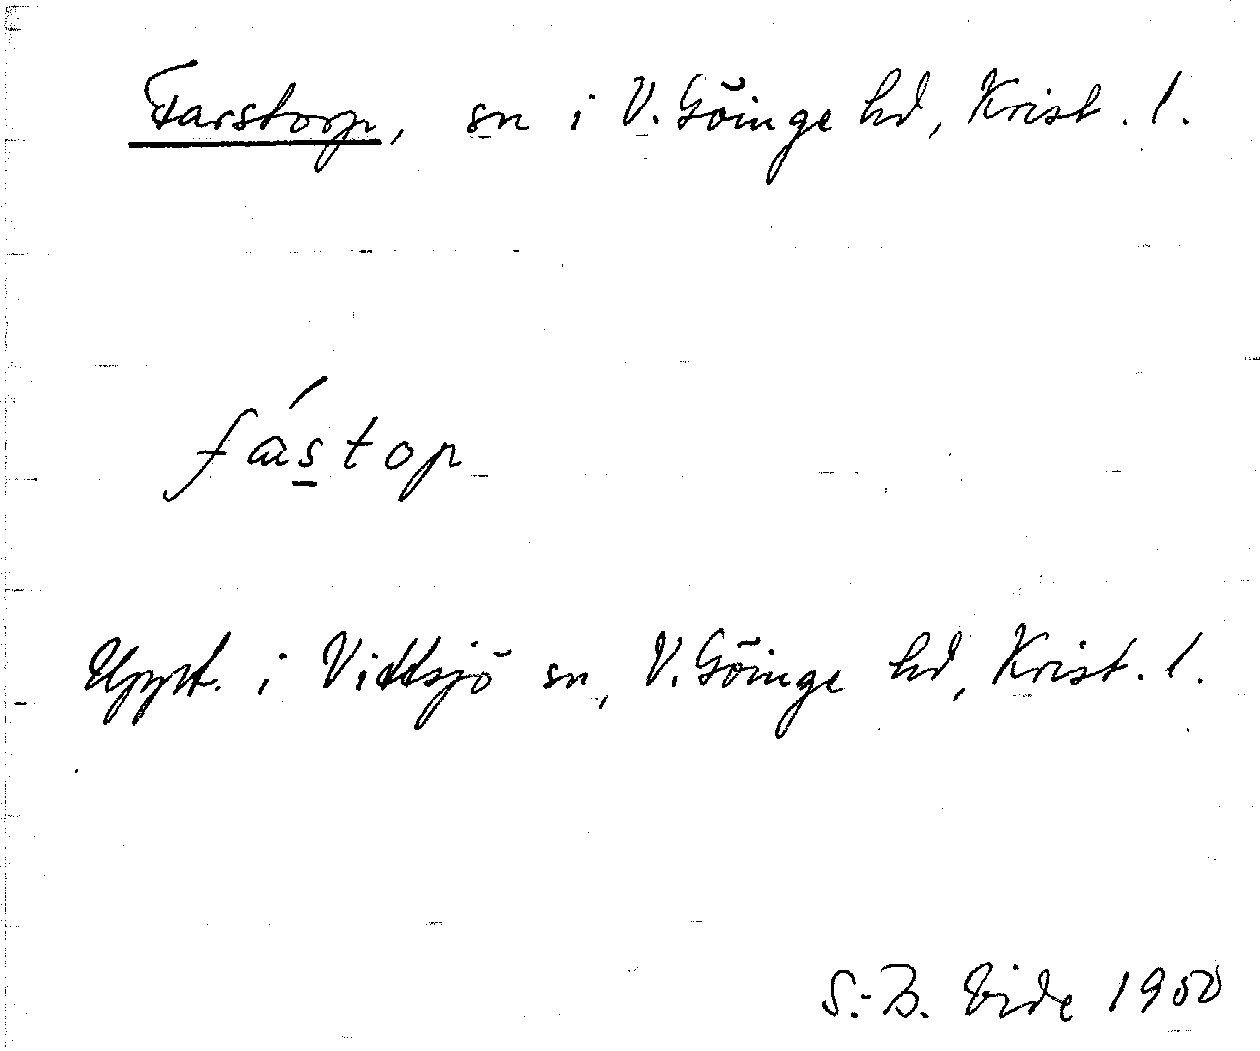 Farstorp, sn i V. Göinge hd, Krist. l.
fás̱top
Uppt. i Vittsjö sn, V. Göinge hd, Krist. l.
S.-B. Vide 1950